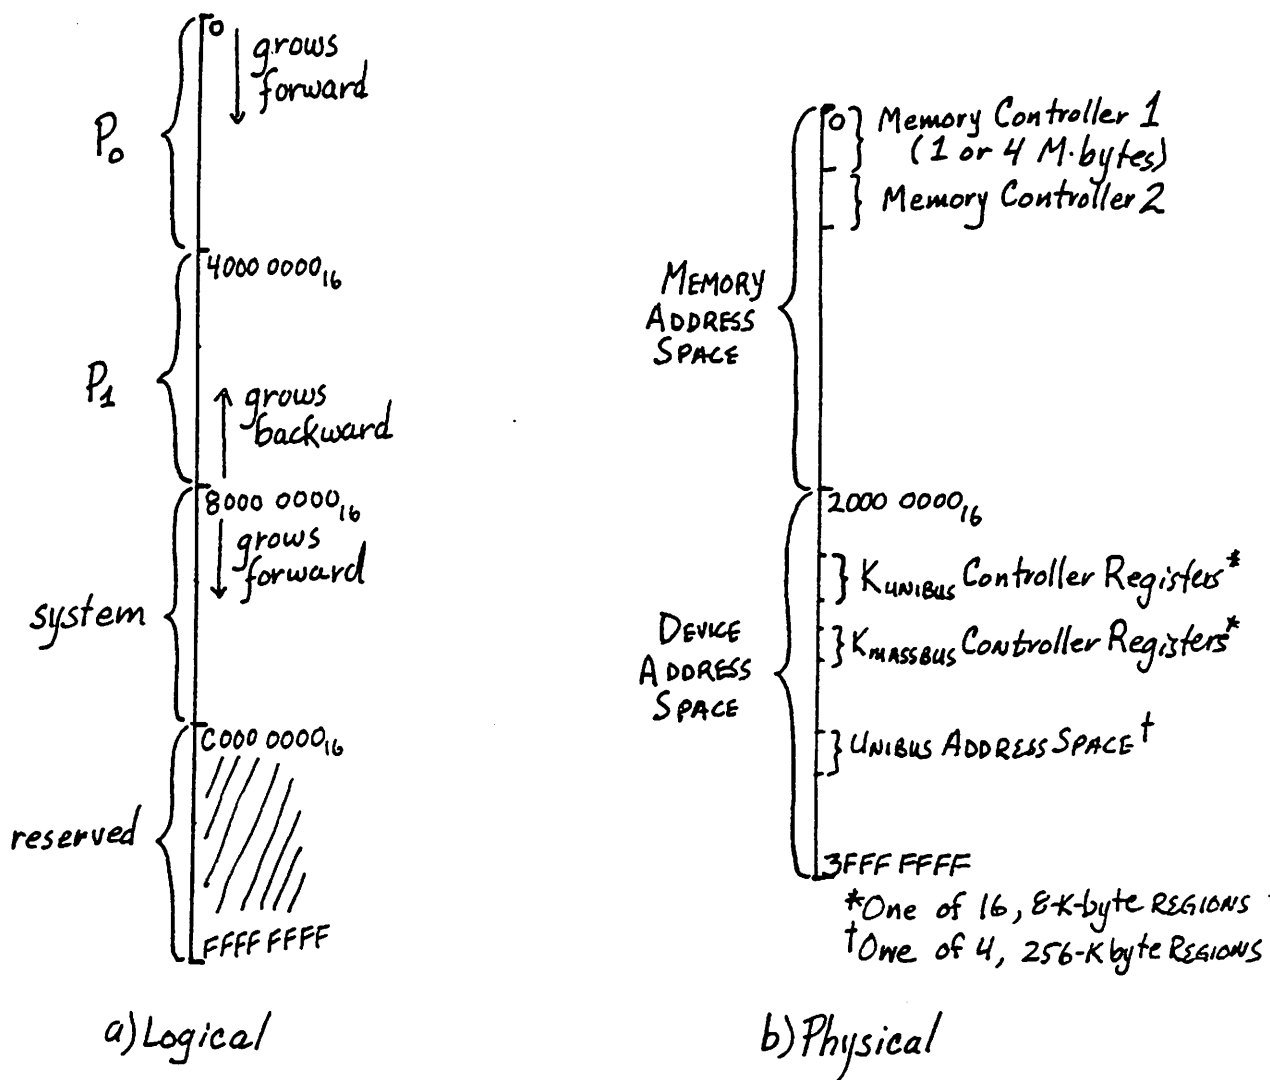 0
grows
forward
P₀
4000 0000₁₆
P₁
grows
backward
8000 0000₁₆
grows
forward
system
C000 0000₁₆
reserved
FFFF FFFF
a) Logical
0
Memory Controller 1
(1 or 4 M·bytes)
Memory Controller 2
MEMORY
ADDRESS
SPACE
2000 0000₁₆
KUNIBUS Controller Registers*
KMASSBUS Controller Registers*
DEVICE
ADDRESS
SPACE
UNIBUS ADDRESS SPACE†
3FFF FFFF
*One of 16, 8-K-byte REGIONS
†One of 4, 256-K byte REGIONS
b) Physical